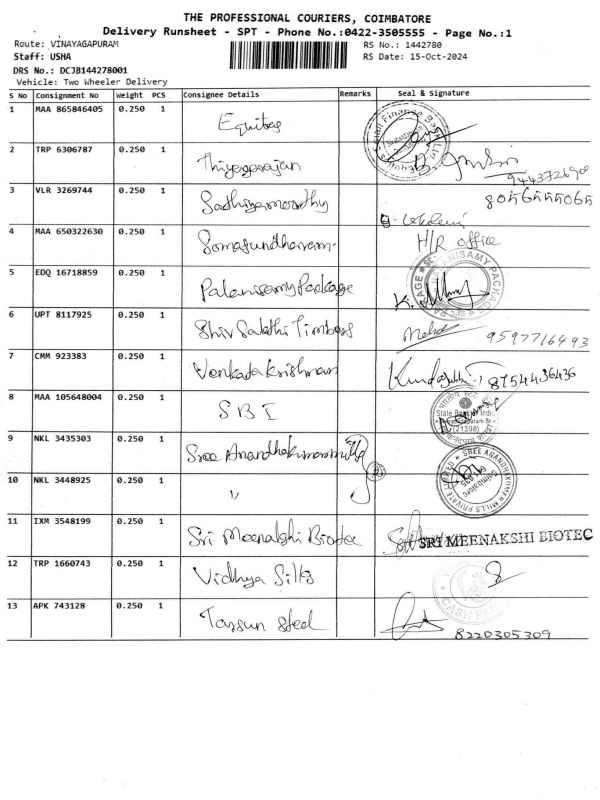 THE PROFESSIONAL COURIERS, COIMBATORE
Delivery Runsheet - SPT - Phone No.:0422-3505555 - Page No.:1
Route: VINAYAGAPURAM RS No.: 1442780
Staff: USHA RS Date: 15-Oct-2024
DRS No.: DCJB144278001
Vehicle: Two Wheeler Delivery
S No Consignment No Weight PCS Consignee Details Remarks Seal & Signature
1 MAA 865846405 0.250 1 Equitas
2 TRP 6306787 0.250 1 Thiyagarajan
9443726900
3 VLR 3269744 0.250 1 Sadhiyamoorthy 8056555065
4 MAA 650322630 0.250 1 Somasundharam. H/R office
5 EDQ 16718859 0.250 1 Palanisamy Package
6 UPT 8117925 0.250 1 Shiv Sakthi Timbers 9597716493
7 CMM 923383 0.250 1 Venkatakrishnan 8754436436
8 MAA 105648004 0.250 1 SBI State Bank of India
(21308)
9 NKL 3435303 0.250 1 Sree Anandhakumar mills SREE ANANDHAKUMAR MILLS PRIVATE LIMITED
10 NKL 3448925 0.250 1 "
11 IXM 3548199 0.250 1 Sri Meenakshi Biotec SRI MEENAKSHI BIOTEC
12 TRP 1660743 0.250 1 Vidhya Silks
13 APK 743128 0.250 1 Tarsun steel
8220305309